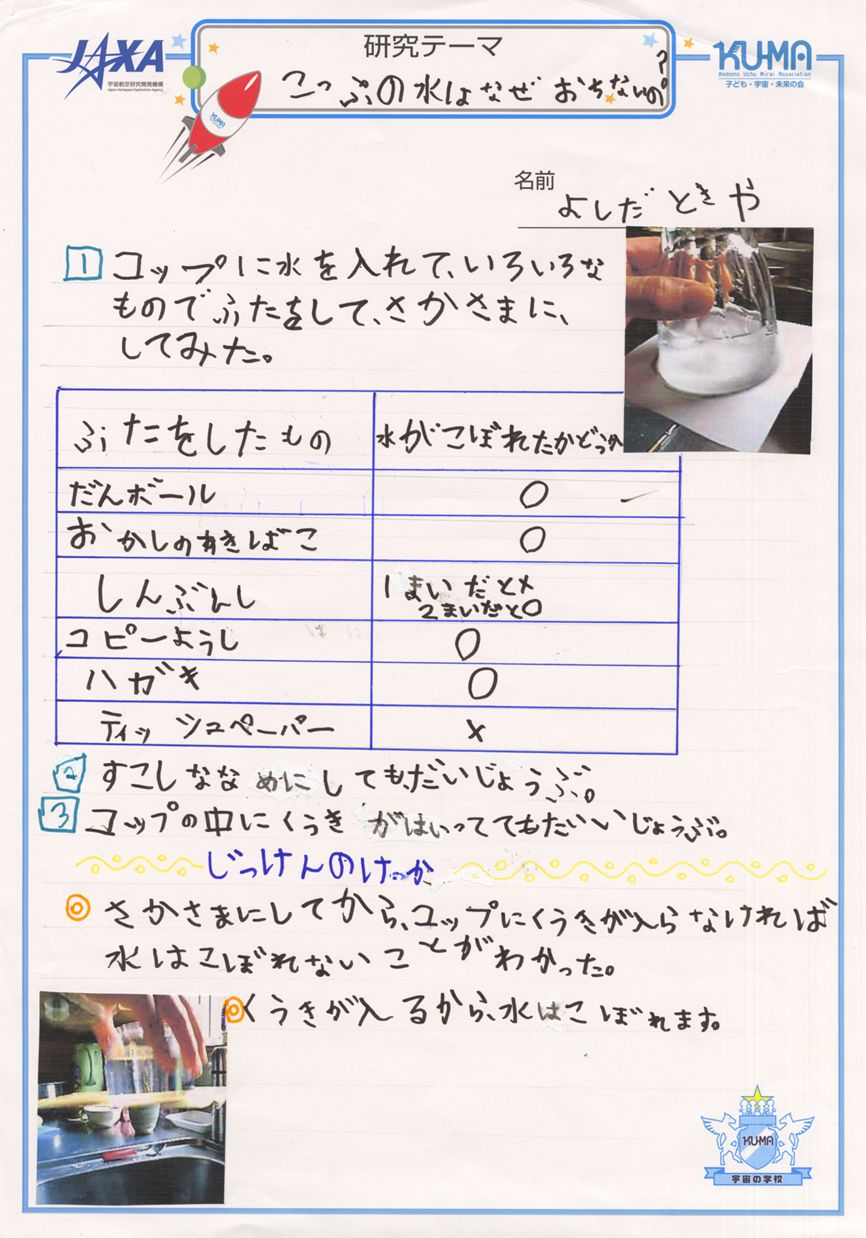 JAXA
宇宙航空研究開発機構
Japan Aerospace Exploration Agency
研究テーマ
こっぷの水はなぜ おちないの?
KUMA
Kodomo Uchu Mirai Association
子ども・宇宙・未来の会
名前
よしだ ときや
1 コップに水を入れて、いろいろな
ものでふたをして、さかさまに、
してみた。
ふたをしたもの 水がこぼれたかどうか
だんボール ○
おかしのあきばこ ○
しんぶんし 1まいだと×
2まいだと○
コピーようし ○
ハガキ ○
ティッシュペーパー ×
2 すこしななめにしても、だいじょうぶ。
3 コップの中にくうきがはいっててもだいじょうぶ。
じっけんのけっか
◎ さかさまにしてから、コップにくうきが入らなければ
水はこぼれないことがわかった。
◎くうきが入るから、水はこぼれます。
KUMA
宇宙の学校